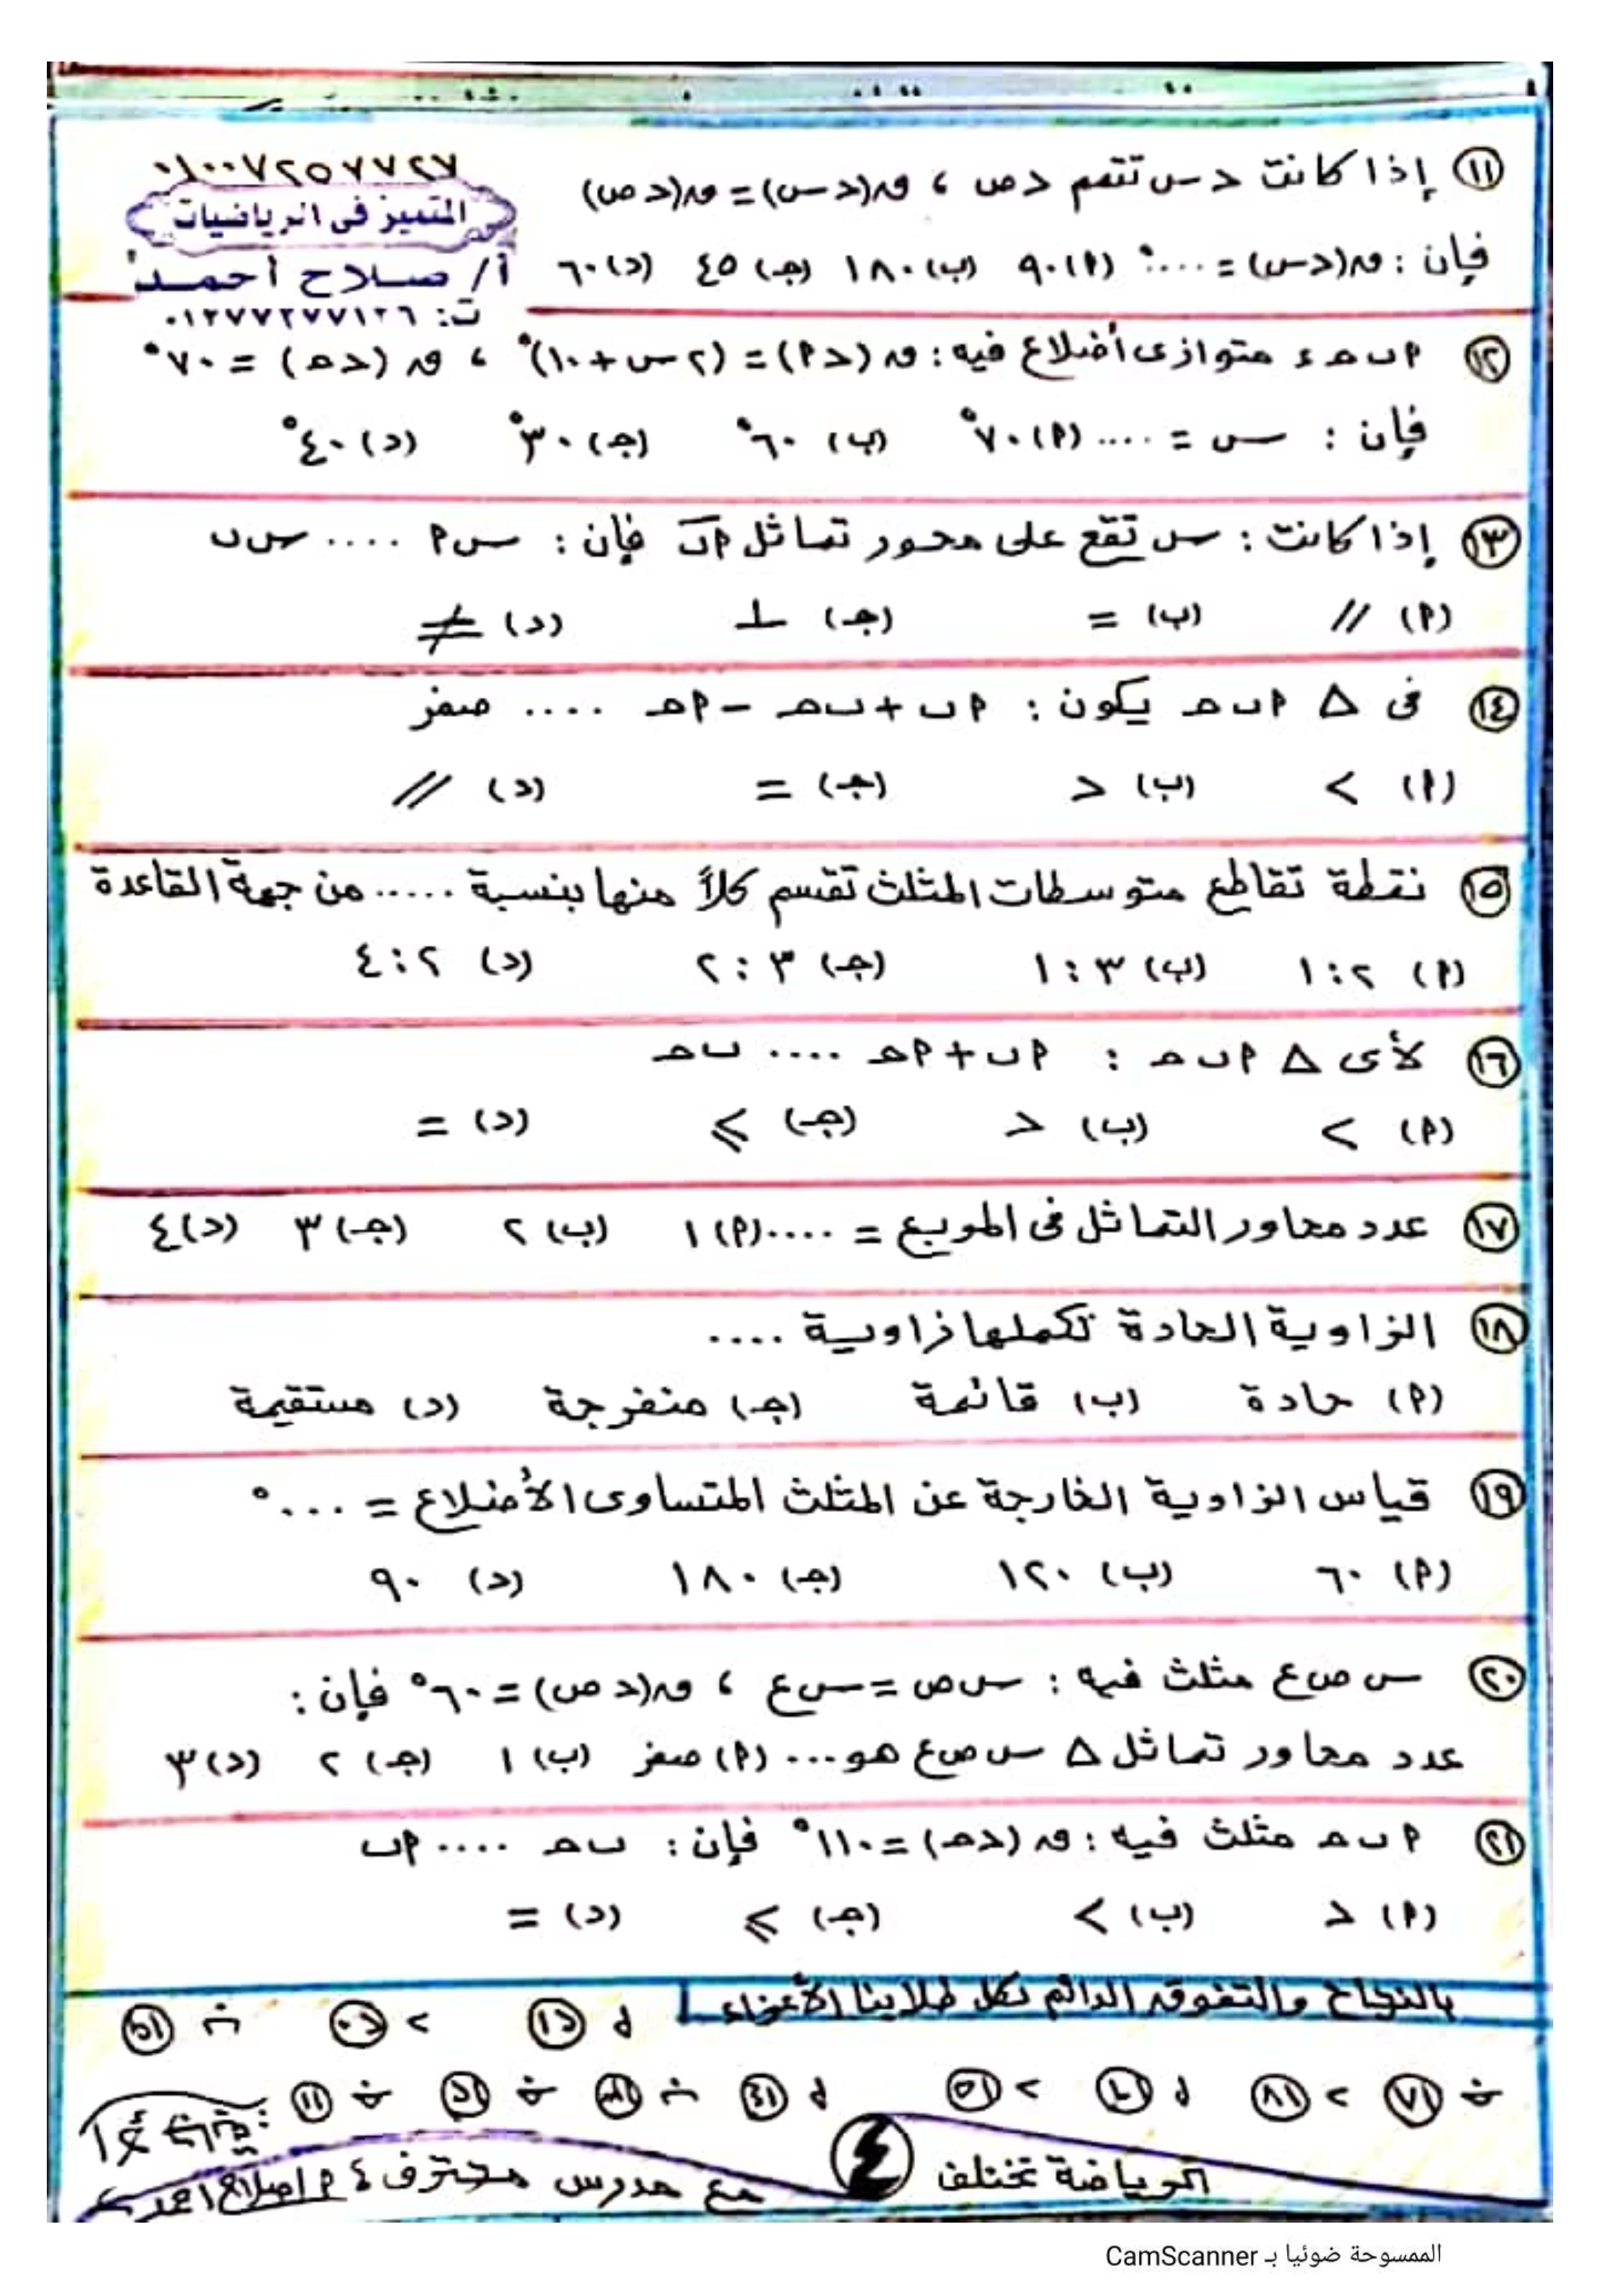 ٠١٠٠٧٢٥٧٧٢٧
المتميز فى الرياضيات
أ/ صلاح أحمد
ت: ٠١٢٧٧٢٧٧١٢٦
١١ إذا كانت د س تتمم د ص ، ق(د س) = ق(د ص)
فإن : ق(د س) = ....° (م) ٩٠ (ب) ١٨٠ (جـ) ٤٥ (د) ٦٠
١٢ م ب حـ ء متوازى أضلاع فيه : ق (د م) = (٢ س + ١٠)° ، ق (د حـ) = ٧٠°
فإن : س = .... (م) ٧٠° (ب) ٦٠° (جـ) ٣٠° (د) ٤٠°
١٣ إذا كانت : س تقع على محور تماثل م ب فإن : س م .... س ب
(م) // (ب) = (جـ) ⊥ (د) ≠
١٤ فى Δ م ب حـ يكون : م ب + ب حـ - م حـ .... صفر
(م) < (ب) > (جـ) = (د) //
١٥ نقطة تقاطع متوسطات المثلث تقسم كلاً منها بنسبة ..... من جهة القاعدة
(م) ٢ : ١ (ب) ٣ : ١ (جـ) ٣ : ٢ (د) ٢ : ٤
١٦ لأى Δ م ب حـ : م ب + م حـ .... ب حـ
(م) < (ب) > (جـ) ⩽ (د) =
١٧ عدد محاور التماثل فى المربع = .... (م) ١ (ب) ٢ (جـ) ٣ (د) ٤
١٨ الزاوية الحادة تكملها زاوية ....
(م) حادة (ب) قائمة (جـ) منفرجة (د) مستقيمة
١٩ قياس الزاوية الخارجة عن المثلث المتساوى الأضلاع = ....°
(م) ٦٠ (ب) ١٢٠ (جـ) ١٨٠ (د) ٩٠
٢٠ س ص ع مثلث فيه : س ص = س ع ، ق(د ص) = ٦٠° فإن :
عدد محاور تماثل Δ س ص ع هو ... (م) صفر (ب) ١ (جـ) ٢ (د) ٣
٢١ م ب حـ مثلث فيه : ق (د حـ) = ١١٠° فإن : ب حـ .... م ب
(م) > (ب) < (جـ) ⩽ (د) =
بالنجاح والتفوق الدائم لكل طلابنا الأعزاء
الرياضة تختلف ٤ مع مدرس محترف ٤ م/صلاح أحمد
الممسوحة ضوئيا بـ CamScanner